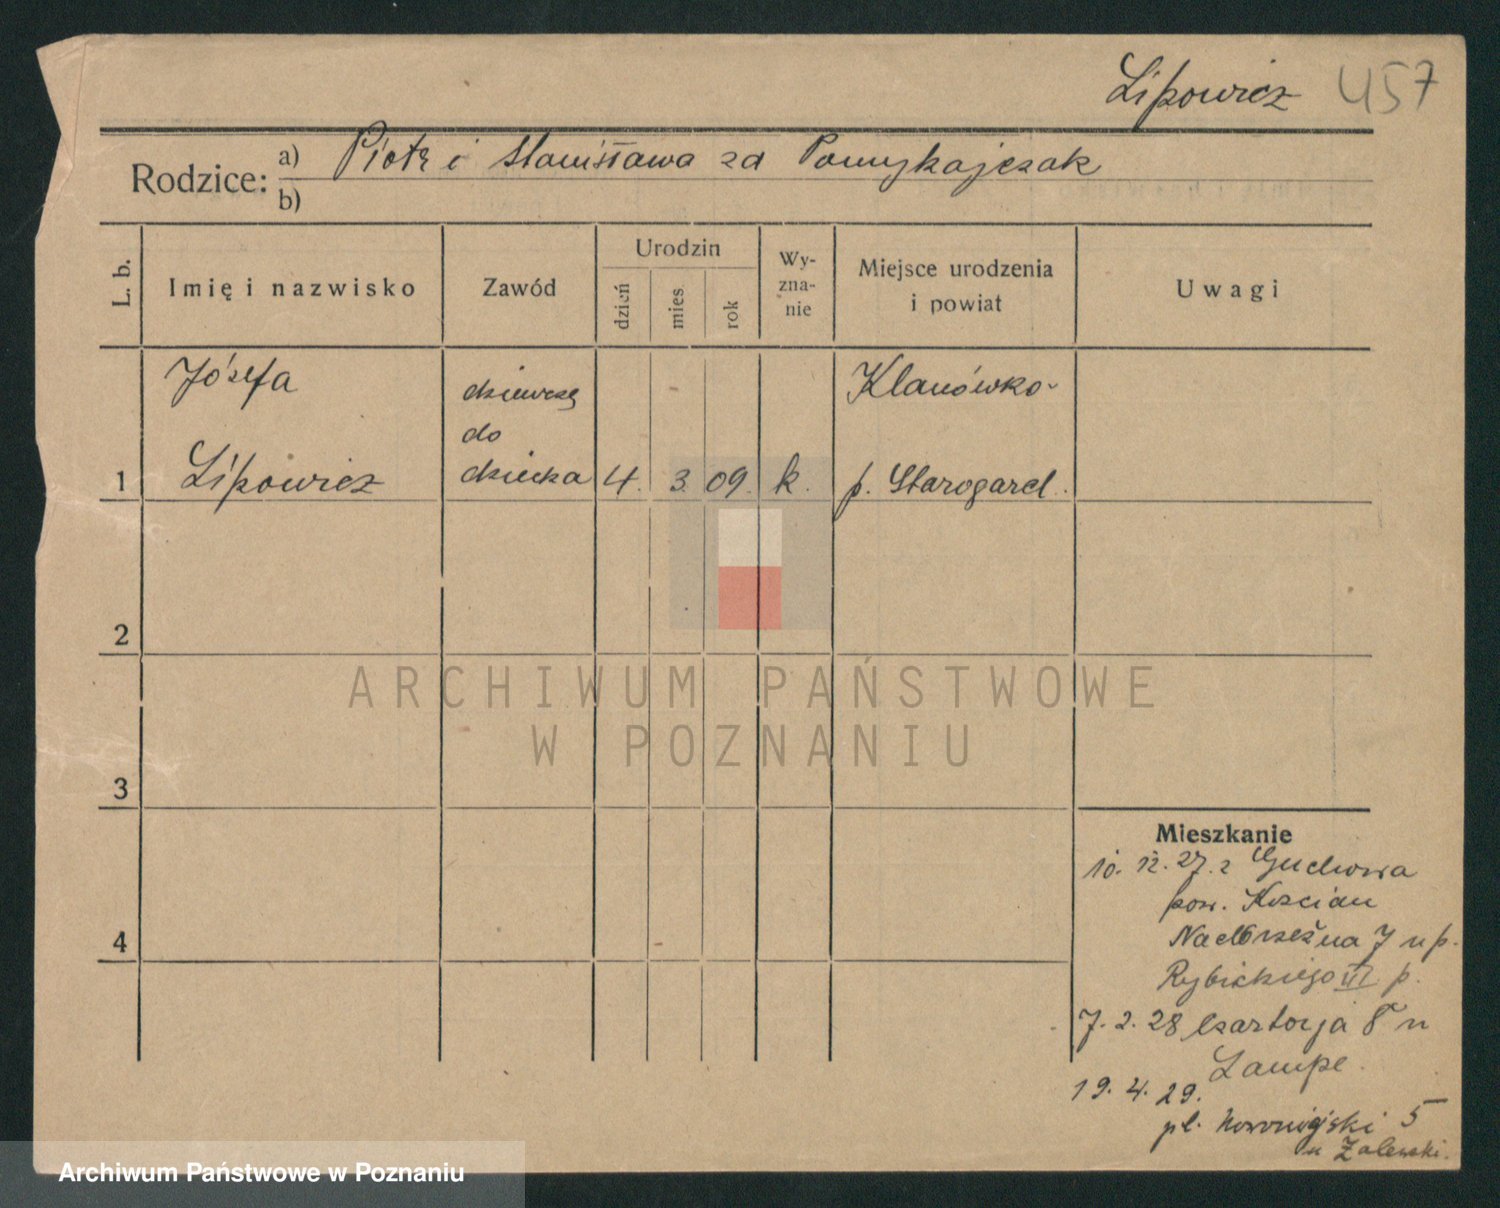 Lipowicz 457
Rodzice: a) Piotr i Stanisława zd Pomykajczak
b)
L. b.
Imię i nazwisko
Zawód
Urodzin
dzień
mies
rok
Wy-
zna-
nie
Miejsce urodzenia
i powiat
Uwagi
Józefa
Lipowicz
dziewczę
do
dziecka
4. 3. 09. k.
Klanówko-
p. Starogard.
1
2
3
4
ARCHIWUM PAŃSTWOWE
W POZNANIU
Mieszkanie
10. 12. 27. z
pow. Kościan
Nadbrzeżna 7 u p.
Rybickiego III p.
7. 2. 28 Czartorja 8 u
Lampe.
19. 4. 29.
pl. Nowomiejski 5
u Zalewski.
Archiwum Państwowe w Poznaniu